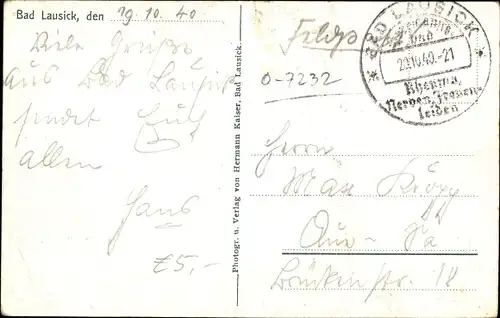 Bad Lausick, den 19.10.40
Viele Grüße
Aus Bad Lausick
sendet Euch
allen
Hans
£5,-
Photogr. u. Verlag von Hermann Kaiser, Bad Lausick.
Feldpost
O-7232
BAD LAUSICK
und
20.10.40.-21
Rheuma,
Nerven, Frauen-
leiden
Herrn
Max
Aue-Sa
Brückenstr. 18